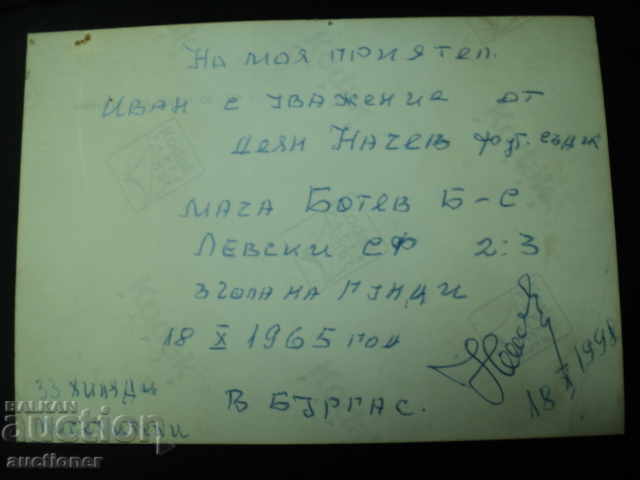 На моя приятел.
Иван с уважение от
Деян Начев фут. съдия
мача Ботев Б-С
Левски СФ 2:3
3 гола на Гунди
18 X 1965 год
18 X 1998
33 хиляди
в Бургас.
BALKAN
auction
auctioner